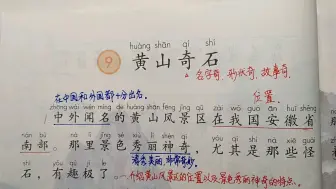 huáng shān qí shí
9 黄山奇石
名字奇、形状奇、故事奇。
在中国和外国都十分出名。
位置。
zhōng wài wén míng de huáng shān fēng jǐng qū zài wǒ guó ān huī shěng
中外闻名的黄山风景区在我国安徽省
nán bù
南部。那里景色秀丽神奇，尤其是那些怪
清秀美丽 非常奇妙。
石，有趣极了。
介绍黄山风景区的位置以及景色秀丽神奇的特点。